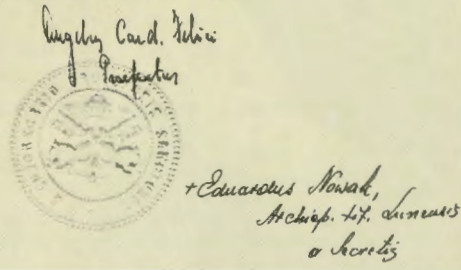 Angelus Card. Felici
Praefectus
+ Eduardus Nowak,
Archiep. tit. Lunensis
a Secretis